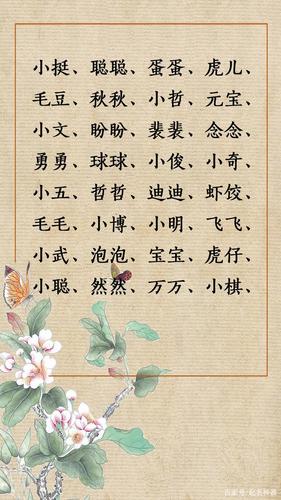 小挺、聪聪、蛋蛋、虎儿、
毛豆、秋秋、小哲、元宝、
小文、盼盼、裴裴、念念、
勇勇、球球、小俊、小奇、
小五、哲哲、迪迪、虾饺、
毛毛、小博、小明、飞飞、
小武、泡泡、宝宝、虎仔、
小聪、然然、万万、小棋、